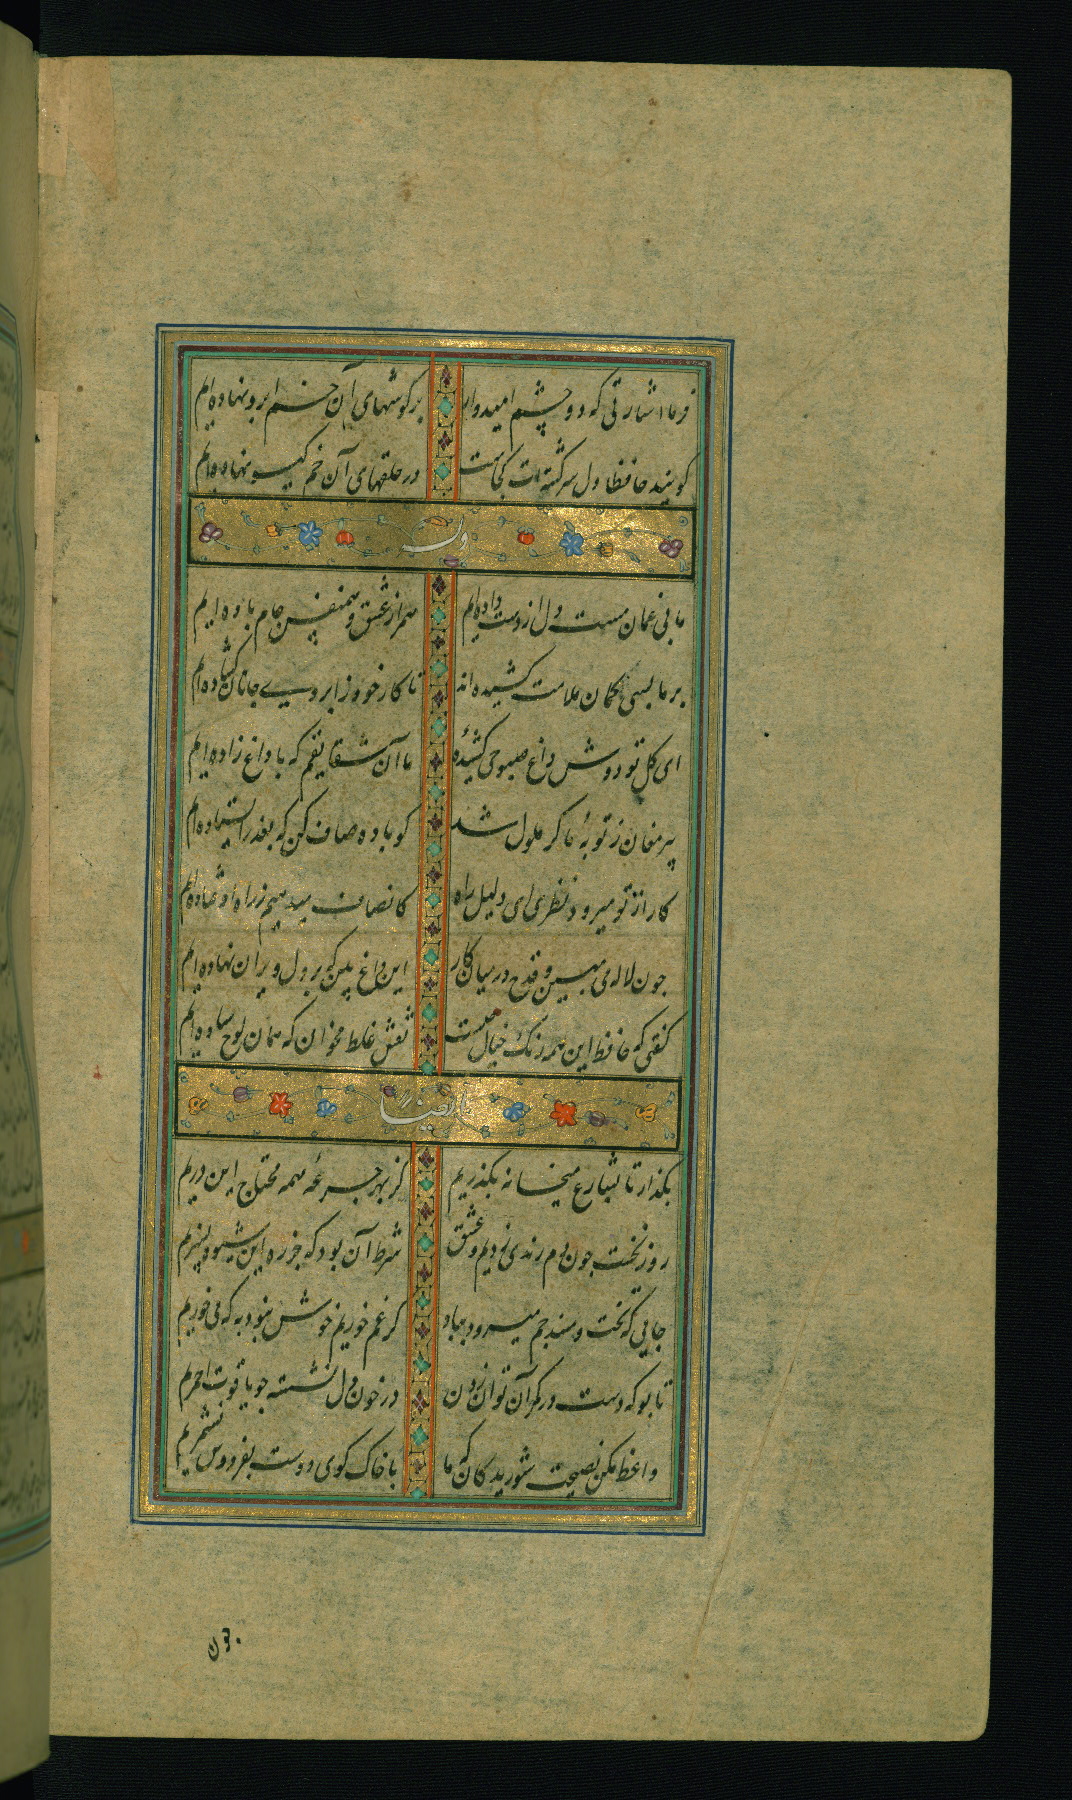 فرما اشارتی که دو چشم امیدوار بر کوشهای آن خم ابرو نهاده ایم
کویند حافظا دل سرکشته ات کجاست در حلقهای آن خم کیسو نهاده ایم
وله
ما بی غمان مست دل از دست داده ایم همراز عشق و همنفس جام باده ایم
بر ما بسی کمان ملامت کشیده اند تا کار خود ز ابروی جانان کشاده ایم
ای کل تو دوش داغ صبوحی کشیدهٔ ما آن شقایقیم که با داغ زاده ایم
پیر مغان ز توبهٔ ما کر ملول شد کو باده صاف کن که بعذر ایستاده ایم
کار از تو میرود نظری ای دلیل راه کانصاف میدهیم ز راه اوفتاده ایم
چون لاله می مبین و قدح در میان کار این داغ بین که بر دل ویران نهاده ایم
کفتی که حافظ این همه رنک خیال چیست نقش غلط مخوان که همان لوح ساده ایم
ایضاً
بکذار تا بشارع میخانه بکذریم کز بهر جرعهٔ همه محتاج این دریم
روز نخست چون دم رندی زدیم و عشق شرط آن بود که جز ره این شیوه نسپریم
جایی که تخت و مسند جم میرود بباد کر غم خوریم خوش نبود به که می خوریم
تا بو که دست در کمر آن توان زدن در خون دل نشسته چو یاقوت احمریم
واعظ مکن نصیحت شوریدکان که ما با خاک کوی دوست بفردوس ننکریم